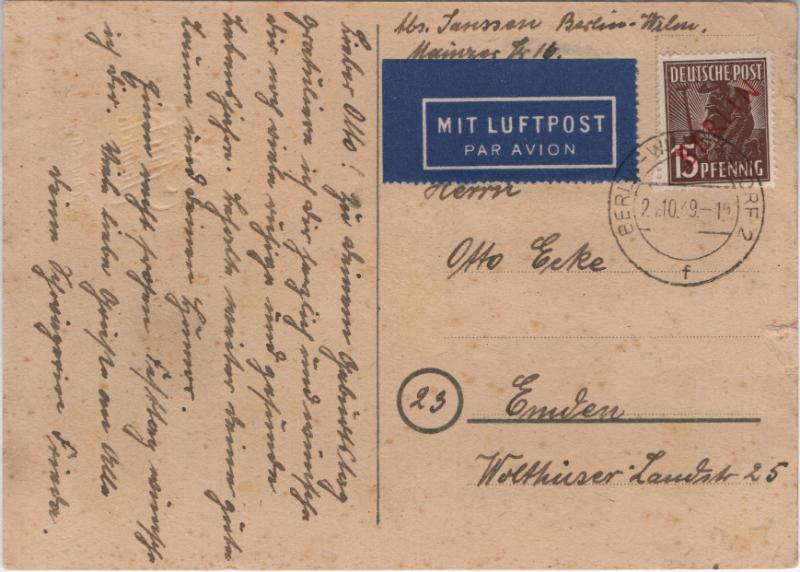 Abs. Janssen Berlin-Wilm.
Mainzer Str 16.
MIT LUFTPOST
PAR AVION
DEUTSCHE POST
BERLIN
15 PFENNIG
BERLIN-WILMERSDORF 2
10.49.-14
f
Herrn
Otto Ecke
23
Emden
Wolthuser-Landstr 25
Lieber Otto! Zu deinem Geburtstag
gratuliere ich dir herzlich und wünsche
dir noch viele ruhige und gesunde
Lebensjahre. Behalte weiter deine gute
Laune und deinen Humor.
Einen recht frohen Festtag wünsche
ich dir. Viele liebe Grüße an Alle
deine Schwägerin Frieda.